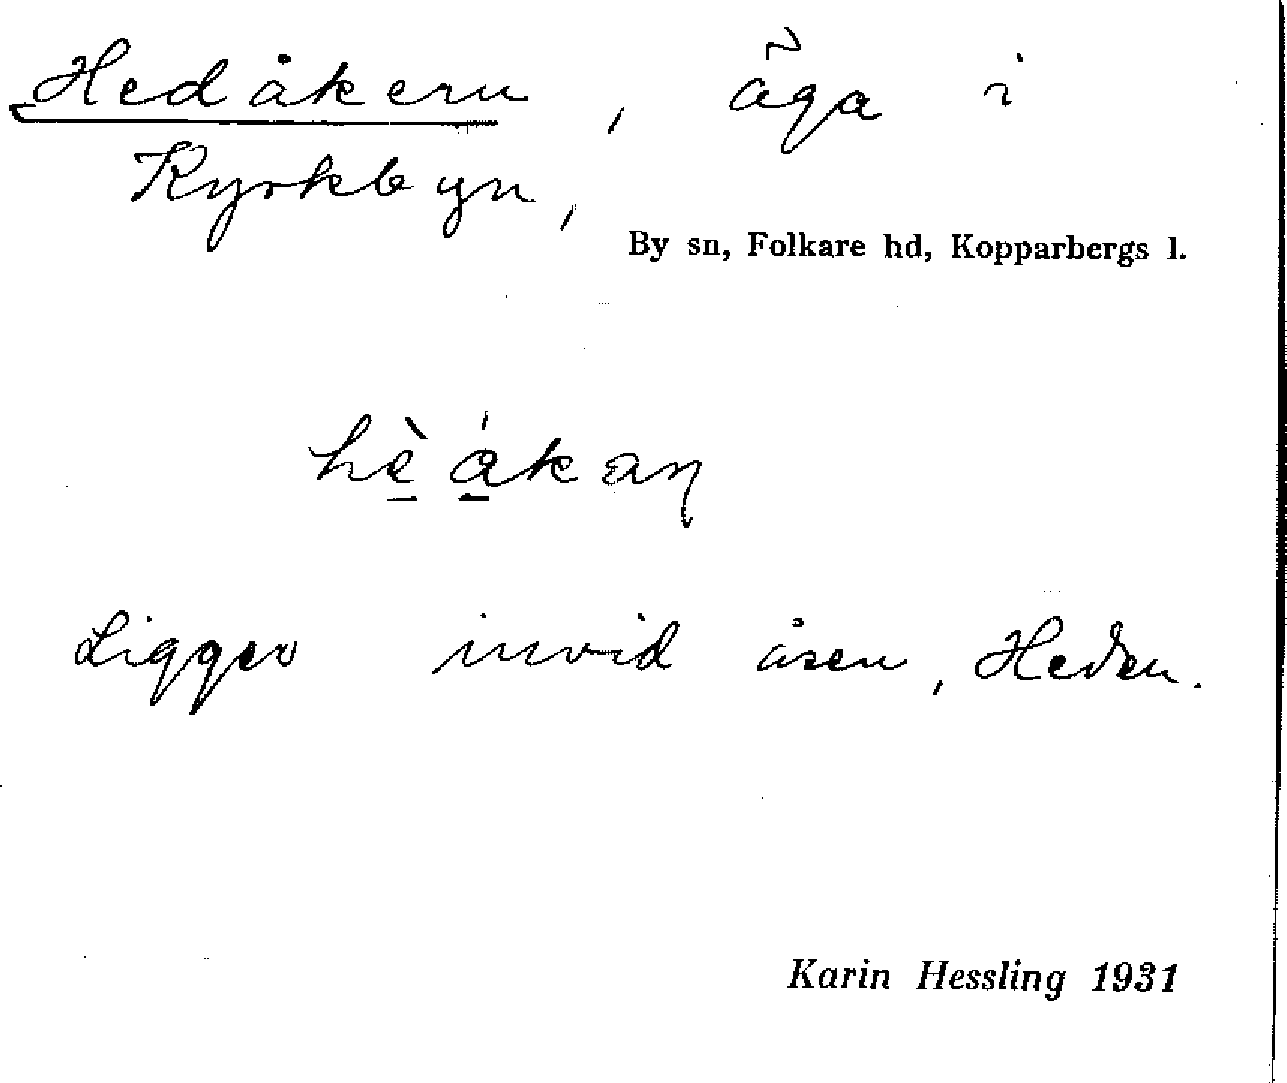 Hedåkern, äga i
Kyrkbyn,
By sn, Folkare hd, Kopparbergs l.
hè̠á̠kaɳ
Ligger invid åsen, Heden.
Karin Hessling 1931